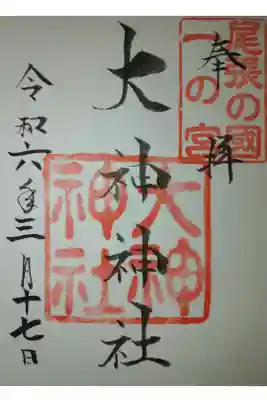 奉拝
尾張の國
一の宮
大神神社
大神
神社
令和六年三月十七日